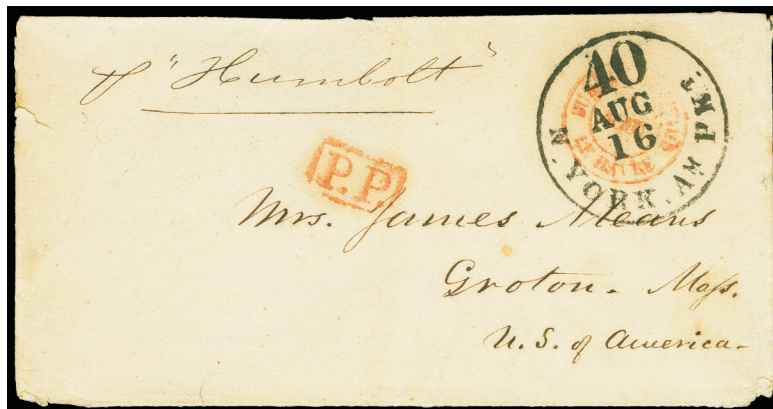 pr "Humbolt"
40
AUG
16
N. YORK. AM PKT.
P.P.
Mrs. James Means
Groton - Mass.
U. S. of America -